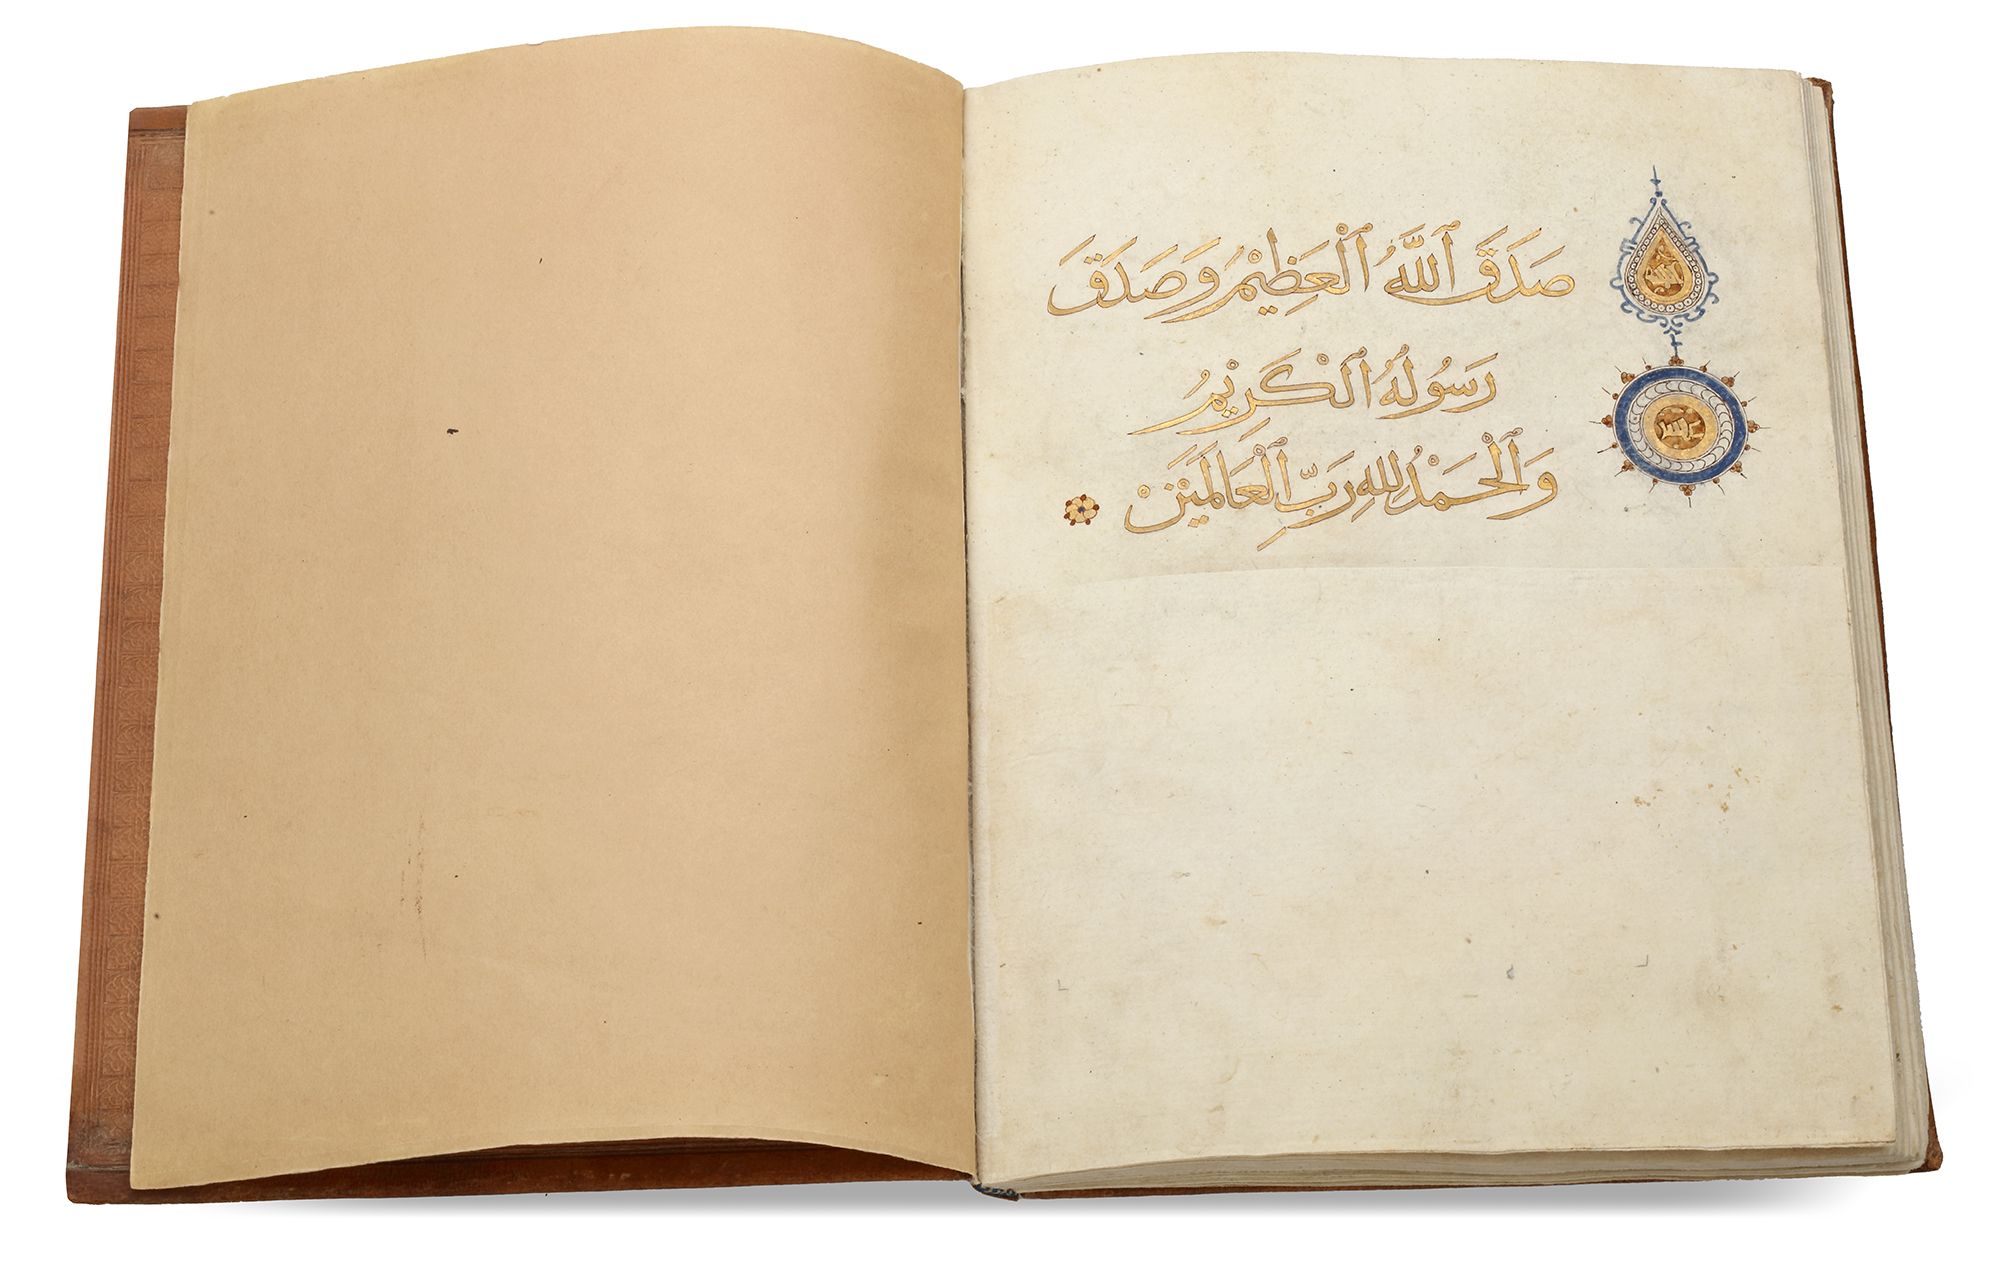 صَدَقَ ٱللَّهُ ٱلْعَظِيْمُ وَصَدَقَ
رَسُولُهُ ٱلْكَرِيْمُ
وَٱلْحَمْدُ لِلهِ رَبِّ ٱلْعَالَمِيْنَ